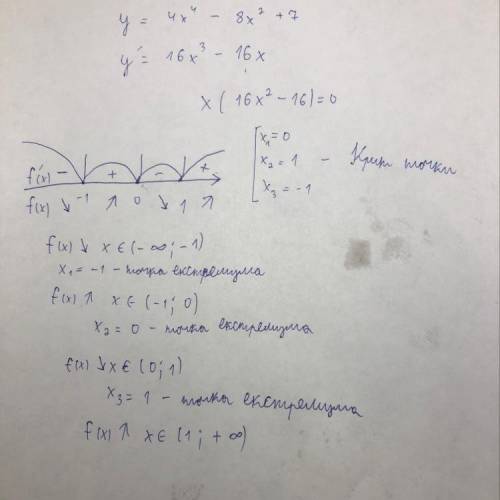 y = 4x⁴ - 8x² + 7
y' = 16x³ - 16x
x(16x² - 16) = 0
x₁ = 0
x₂ = 1 - Крит точки
x₃ = -1
f'(x) - + - +
f(x) ↘ -1 ↗ 0 ↘ 1 ↗
f(x) ↓ x ∈ (-∞; -1)
x₁ = -1 - точка екстремума
f(x) ↑ x ∈ (-1; 0)
x₂ = 0 - точка екстремума
f(x) ↓ x ∈ (0; 1)
x₃ = 1 - точка екстремума
f(x) ↑ x ∈ (1; +∞)